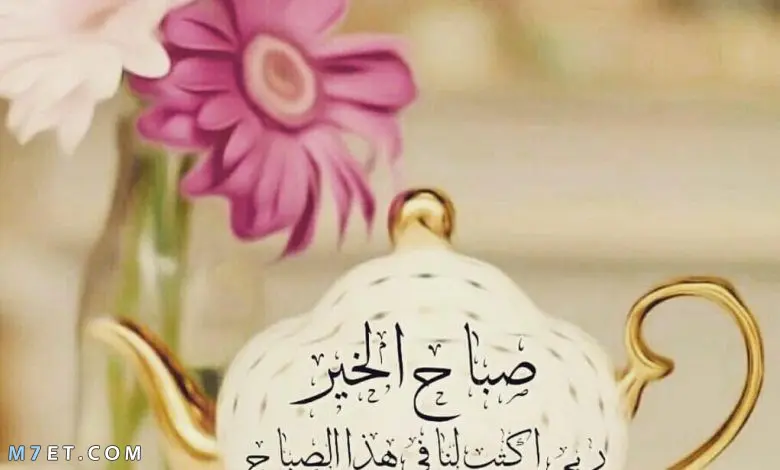 صباح الخير
ربي اكتب لنا في هذا الصباح
M7ET.COM